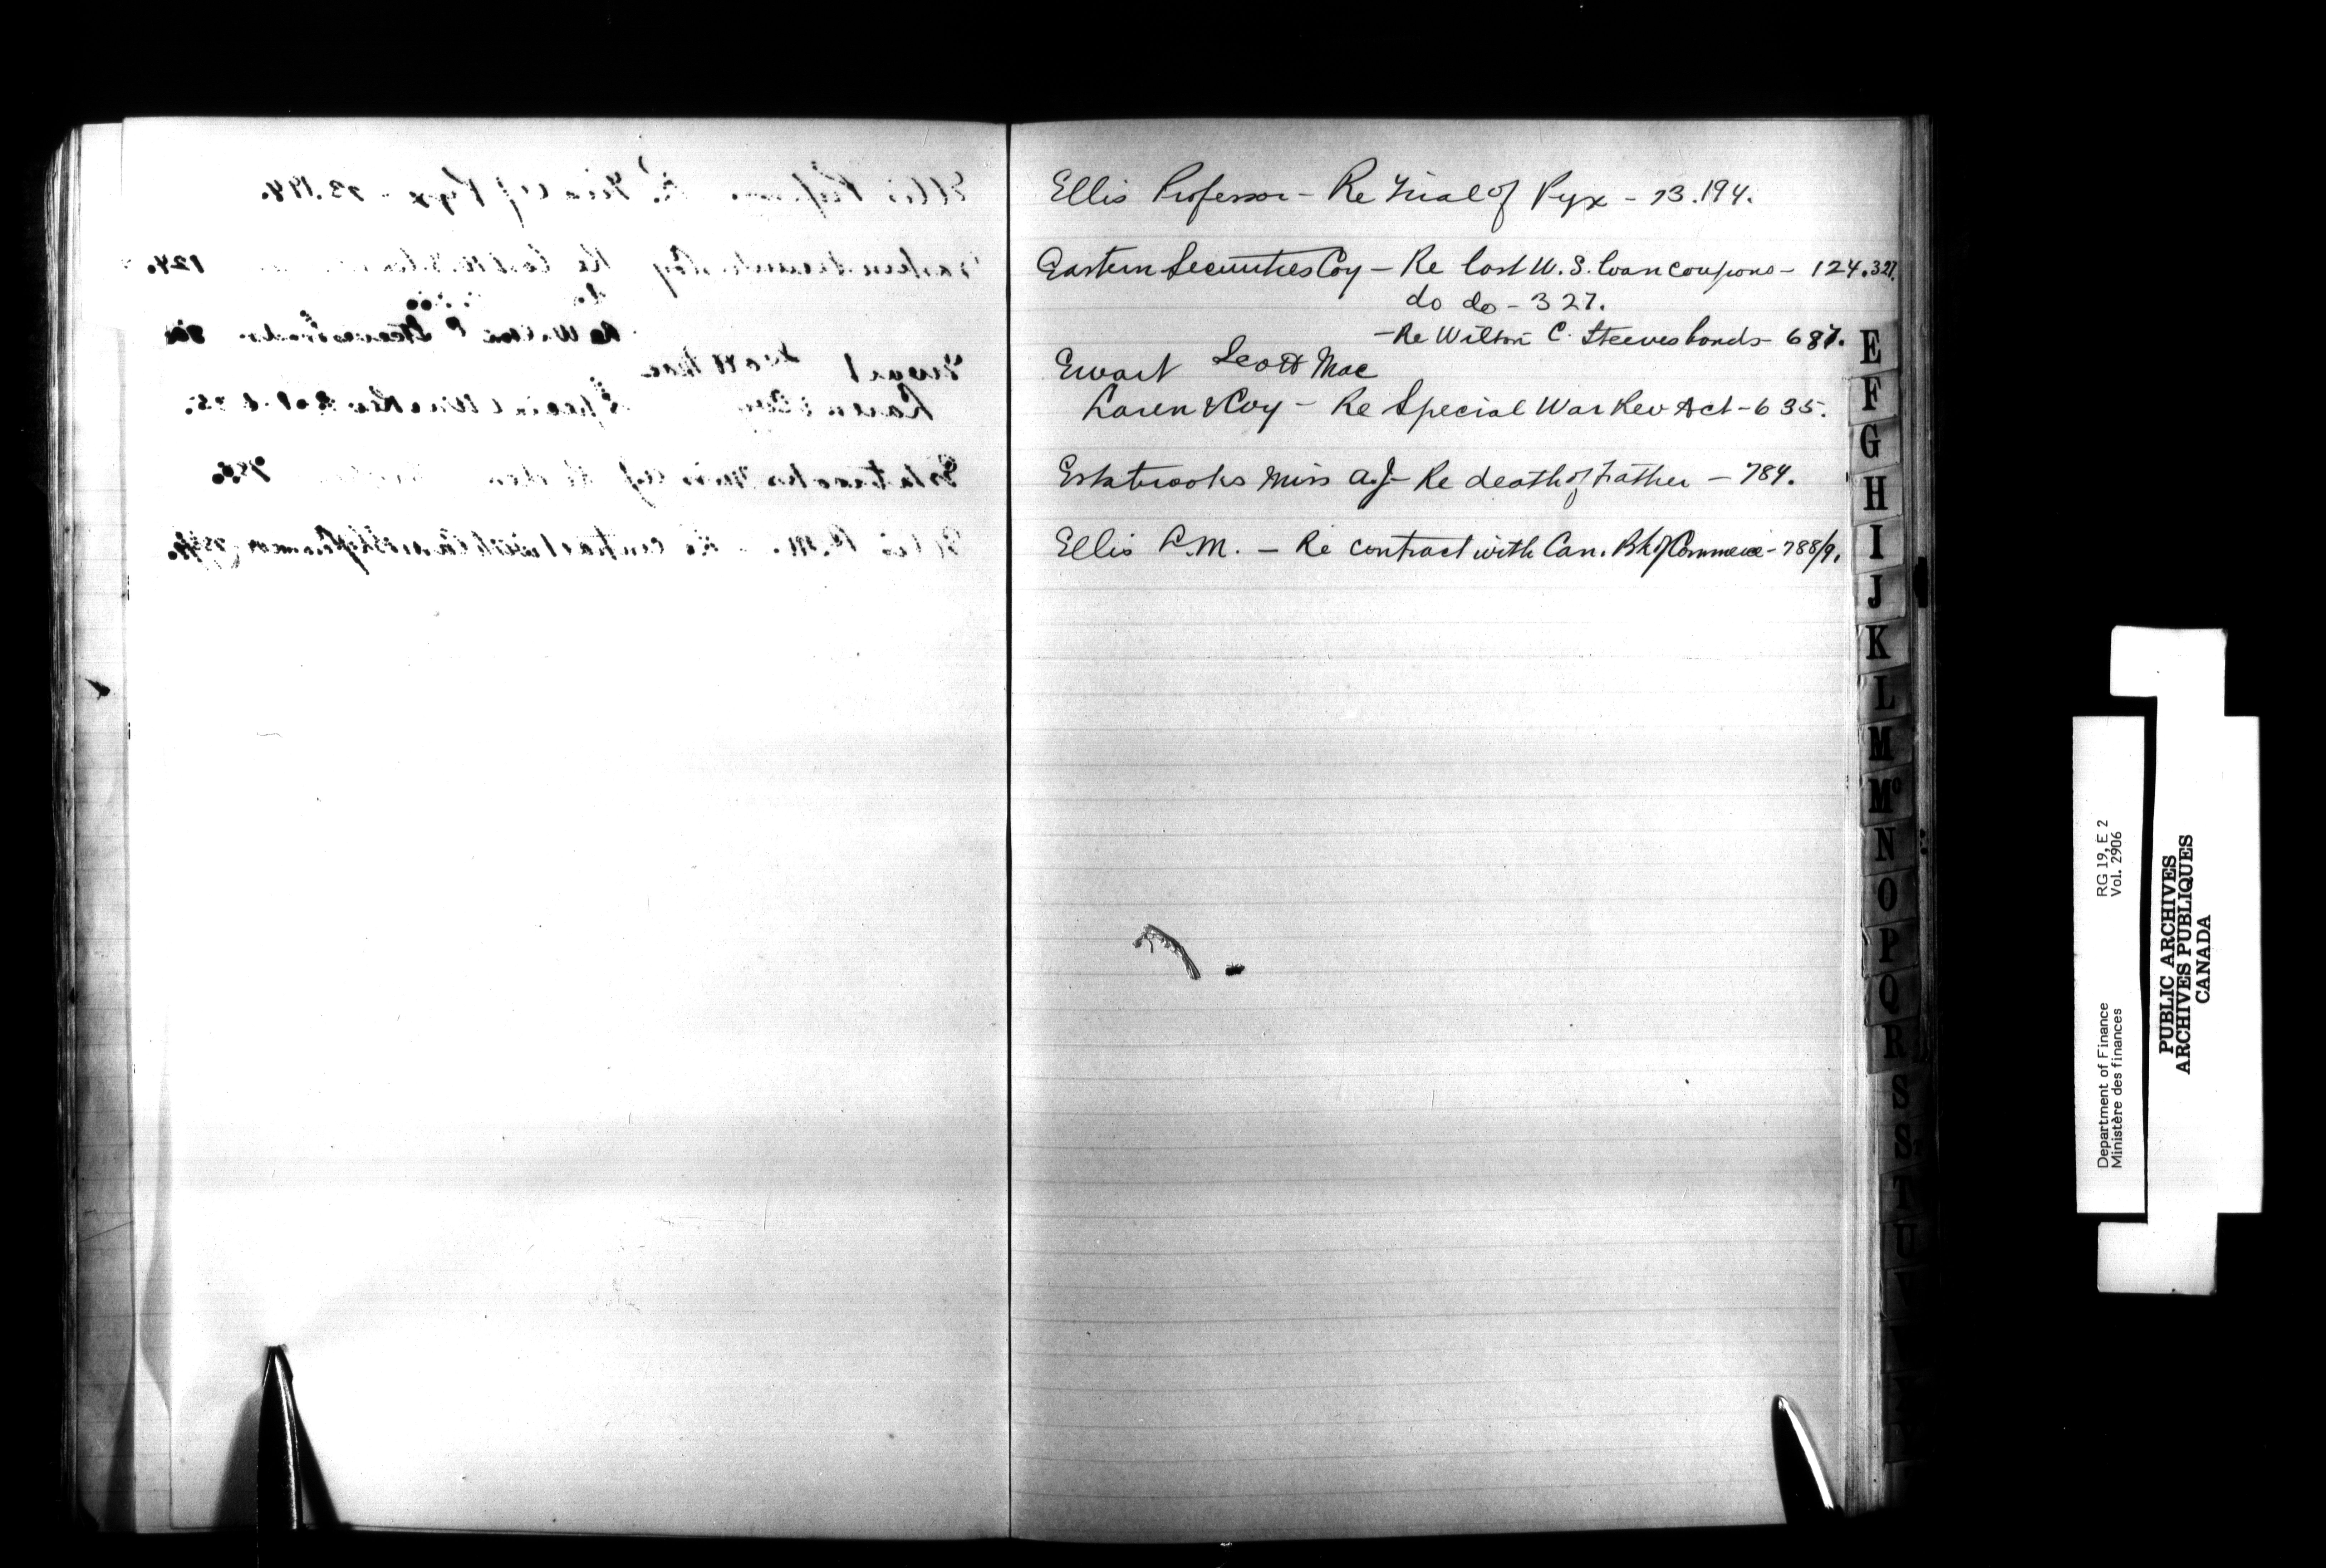 Ellis Professor - Re Trial of Pyx - 73.194.
Eastern Securities Coy - Re lost W. S. loan coupons - 124.327.
do do - 327.
- Re Wilson C. Steeves bonds - 687.
Ewart Scott Mac
Laren & Coy - Re Special War Rev Act - 635.
Estabrooks Miss A.J - Re death of Father - 784.
Ellis P.M. - Re contract with Can. Bk of Commerce - 788/9.
E
F
G
H
I
J
K
L
M
Mc
N
O
P
Q
R
S
S
T
U
V
Department of Finance
Ministère des finances
RG 19, E 2
Vol. 2906
PUBLIC ARCHIVES
ARCHIVES PUBLIQUES
CANADA